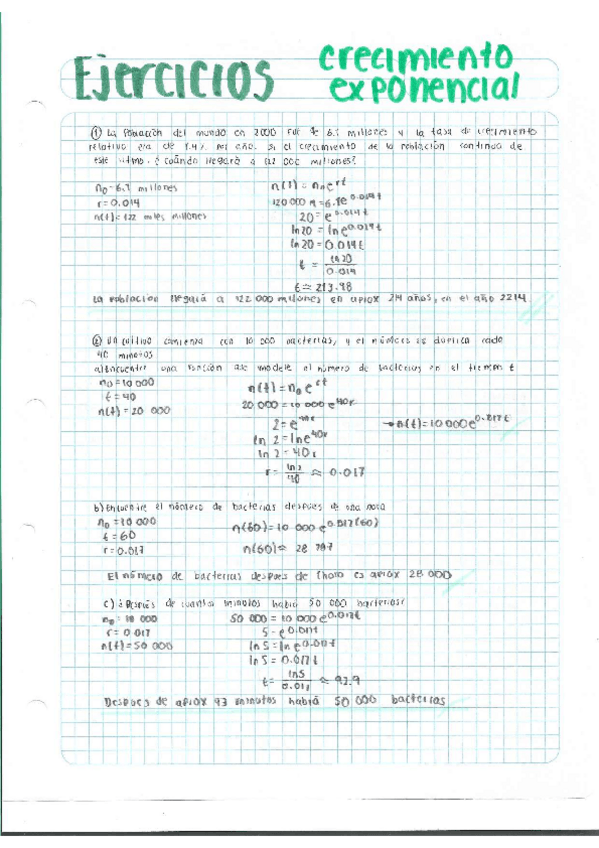 Ejercicios crecimiento exponencial
① La población del mundo en 2000 fue de 6.1 millones y la tasa de crecimiento
relativo era de 1.4% por año. Si el crecimiento de la población continua de
este ritmo. ¿cuándo llegará a 122 000 millones?
n₀=6.1 millones
r=0.014
n(t)=122 miles millones
n(t)=n₀e^rt
120 000 M=6.1e^0.014t
20=e^0.014t
ln20=lne^0.014t
ln20=0.014t
t = ln20/0.014
t≈213.98
La población llegará a 122 000 millones en aprox 214 años, en el año 2214
② Un cultivo comienza con 10 000 bacterias, y el número se duplica cada
40 minutos
a) Encuentre una función que modele el número de bacterias en el tiempo t
n₀=10 000
t=40
n(t)=20 000
n(t)=n₀e^rt
20 000=10 000e^40r
2=e^40r
ln 2=lne^40r
ln 2=40r
r= ln2/40 ≈ 0.017
→n(t)=10 000e^0.017t
b) Encuentre el número de bacterias despues de una hora
n₀=10 000
t=60
r=0.017
n(60)=10 000e^0.017(60)
n(60)≈ 28 
El número de bacterias despues de 1 hora es aprox 28 000
c) ¿Después de cuantos minutos habrá 50 000 bacterias?
n₀= 10 000
r=0.017
n(t)=50 000
50 000=10 000e^0.017t
5=e^0.017t
ln5=lne^0.017t
ln5=0.017t
t= ln5/0.017 ≈
Despues de aprox 93 minutos habrá 50 000 bacterias